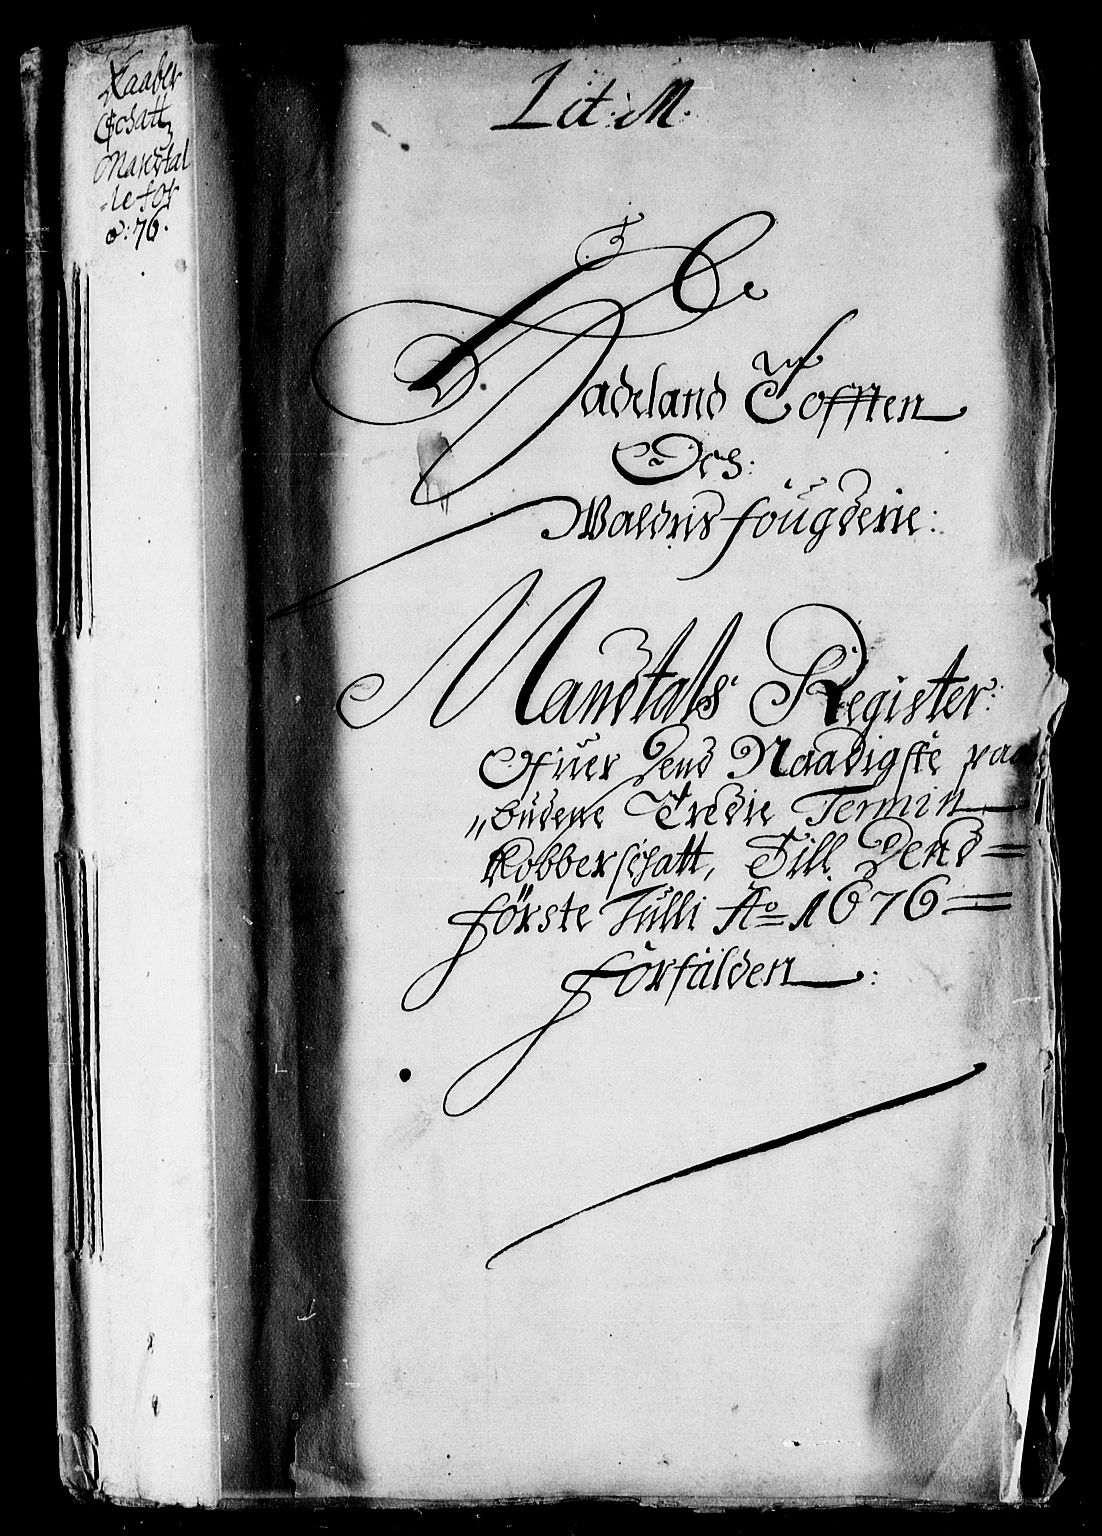 Kaaber
Schatt
Mandtal
-le for
a: 76.
Lit: M.
Hadeland Tofften
Och:
Waldris fougderie:
Mandtals Register:
Ofuer Dend Naadigste paa
"budene Tredie Termin
Kobberschatt, Till Dend=
förste Julli Ao 1676=
forfalden: